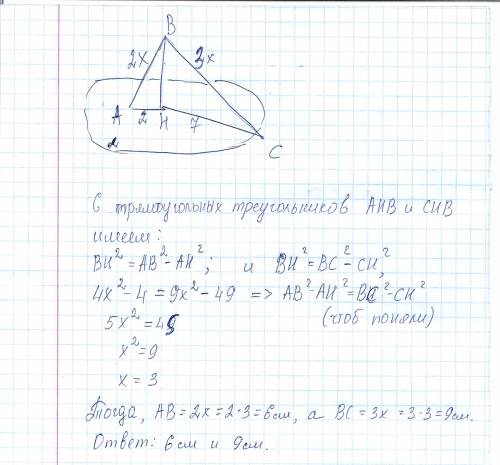 B
2x 3x
A 2 H 7
2 C
С прямоугольных треугольников AHB и CHB
имеем:
BH² = AB² - AH²; и BH² = BC² - CH²,
4x² - 4 = 9x² - 49 => AB² - AH² = BC² - CH²
5x² = 45 (чтоб поняли)
x² = 9
x = 3
Тогда, AB = 2x = 2·3 = 6см, а BC = 3x = 3·3 = 9см.
Ответ: 6см и 9см.